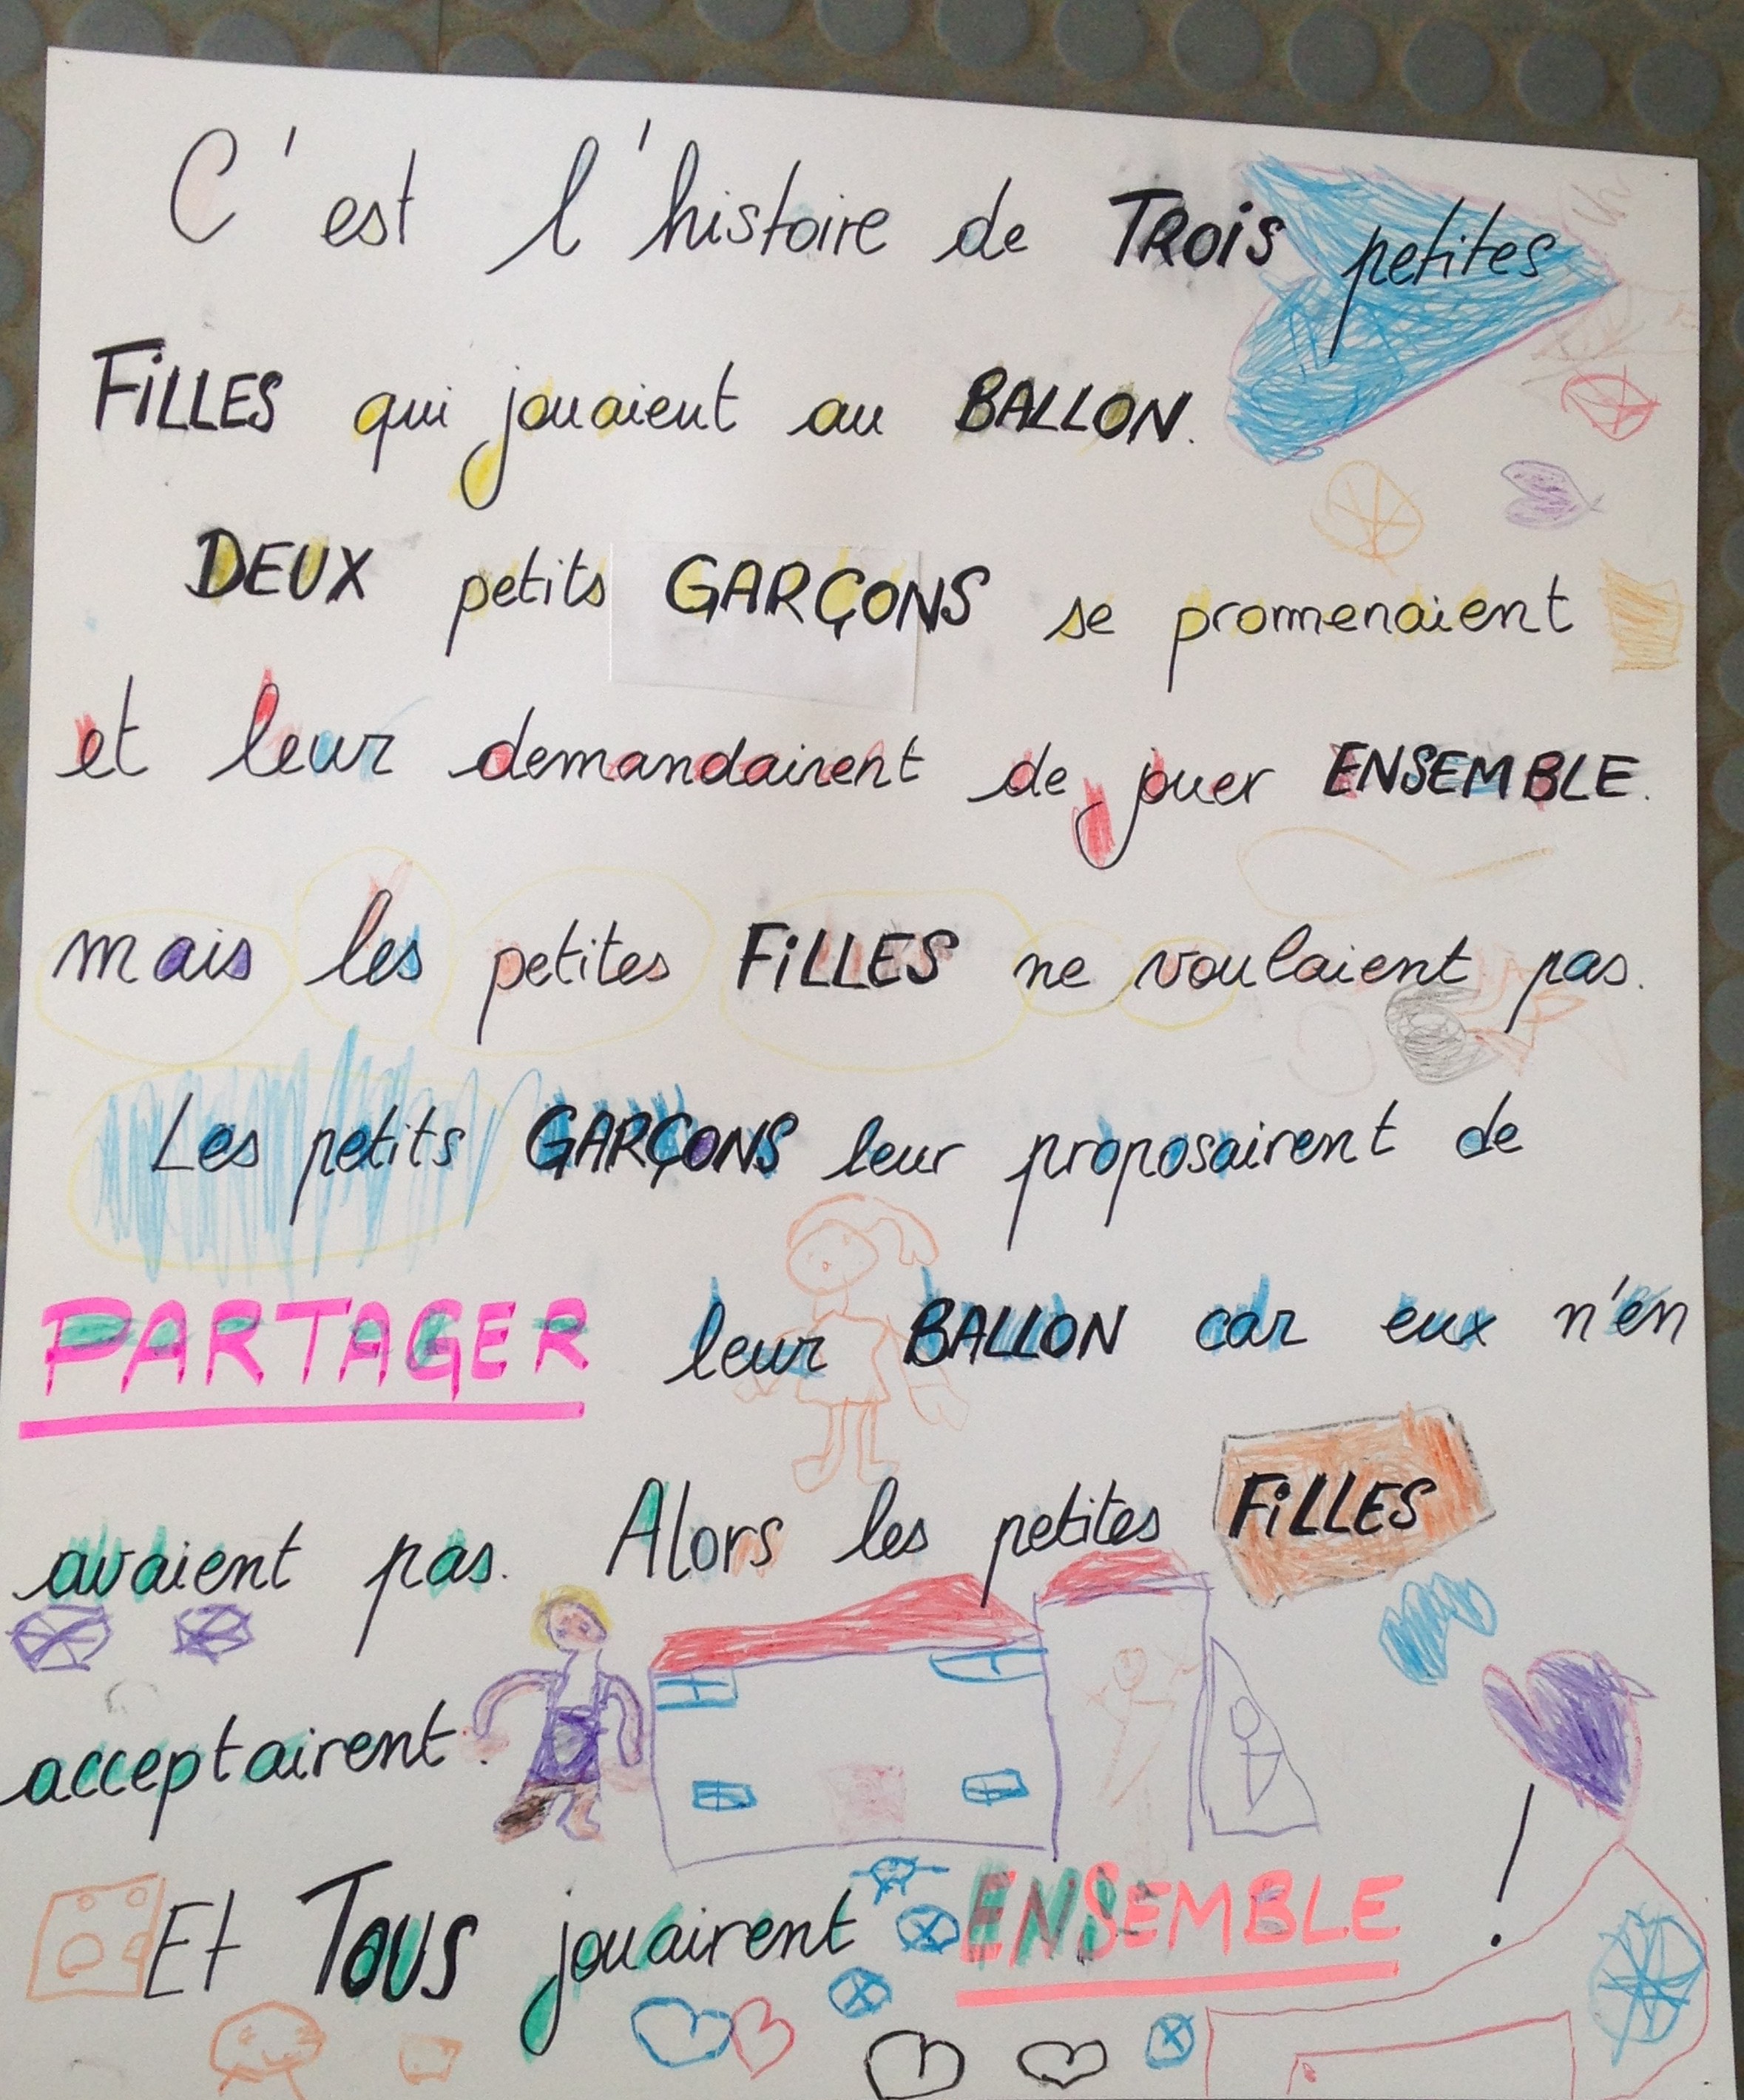 C'est l'histoire de TROiS petites
FiLLES qui jouaient au BALLON.
DEUX petits GARÇONS se promenaient
et leur demandairent de jouer ENSEMBLE.
mais les petites FiLLES ne voulaient pas.
Les petits GARÇONS leur proposairent de
PARTAGER leur BALLON car eux n'en
avaient pas. Alors les petites FiLLES
acceptairent.
Et TOUS jouairent ENSEMBLE !